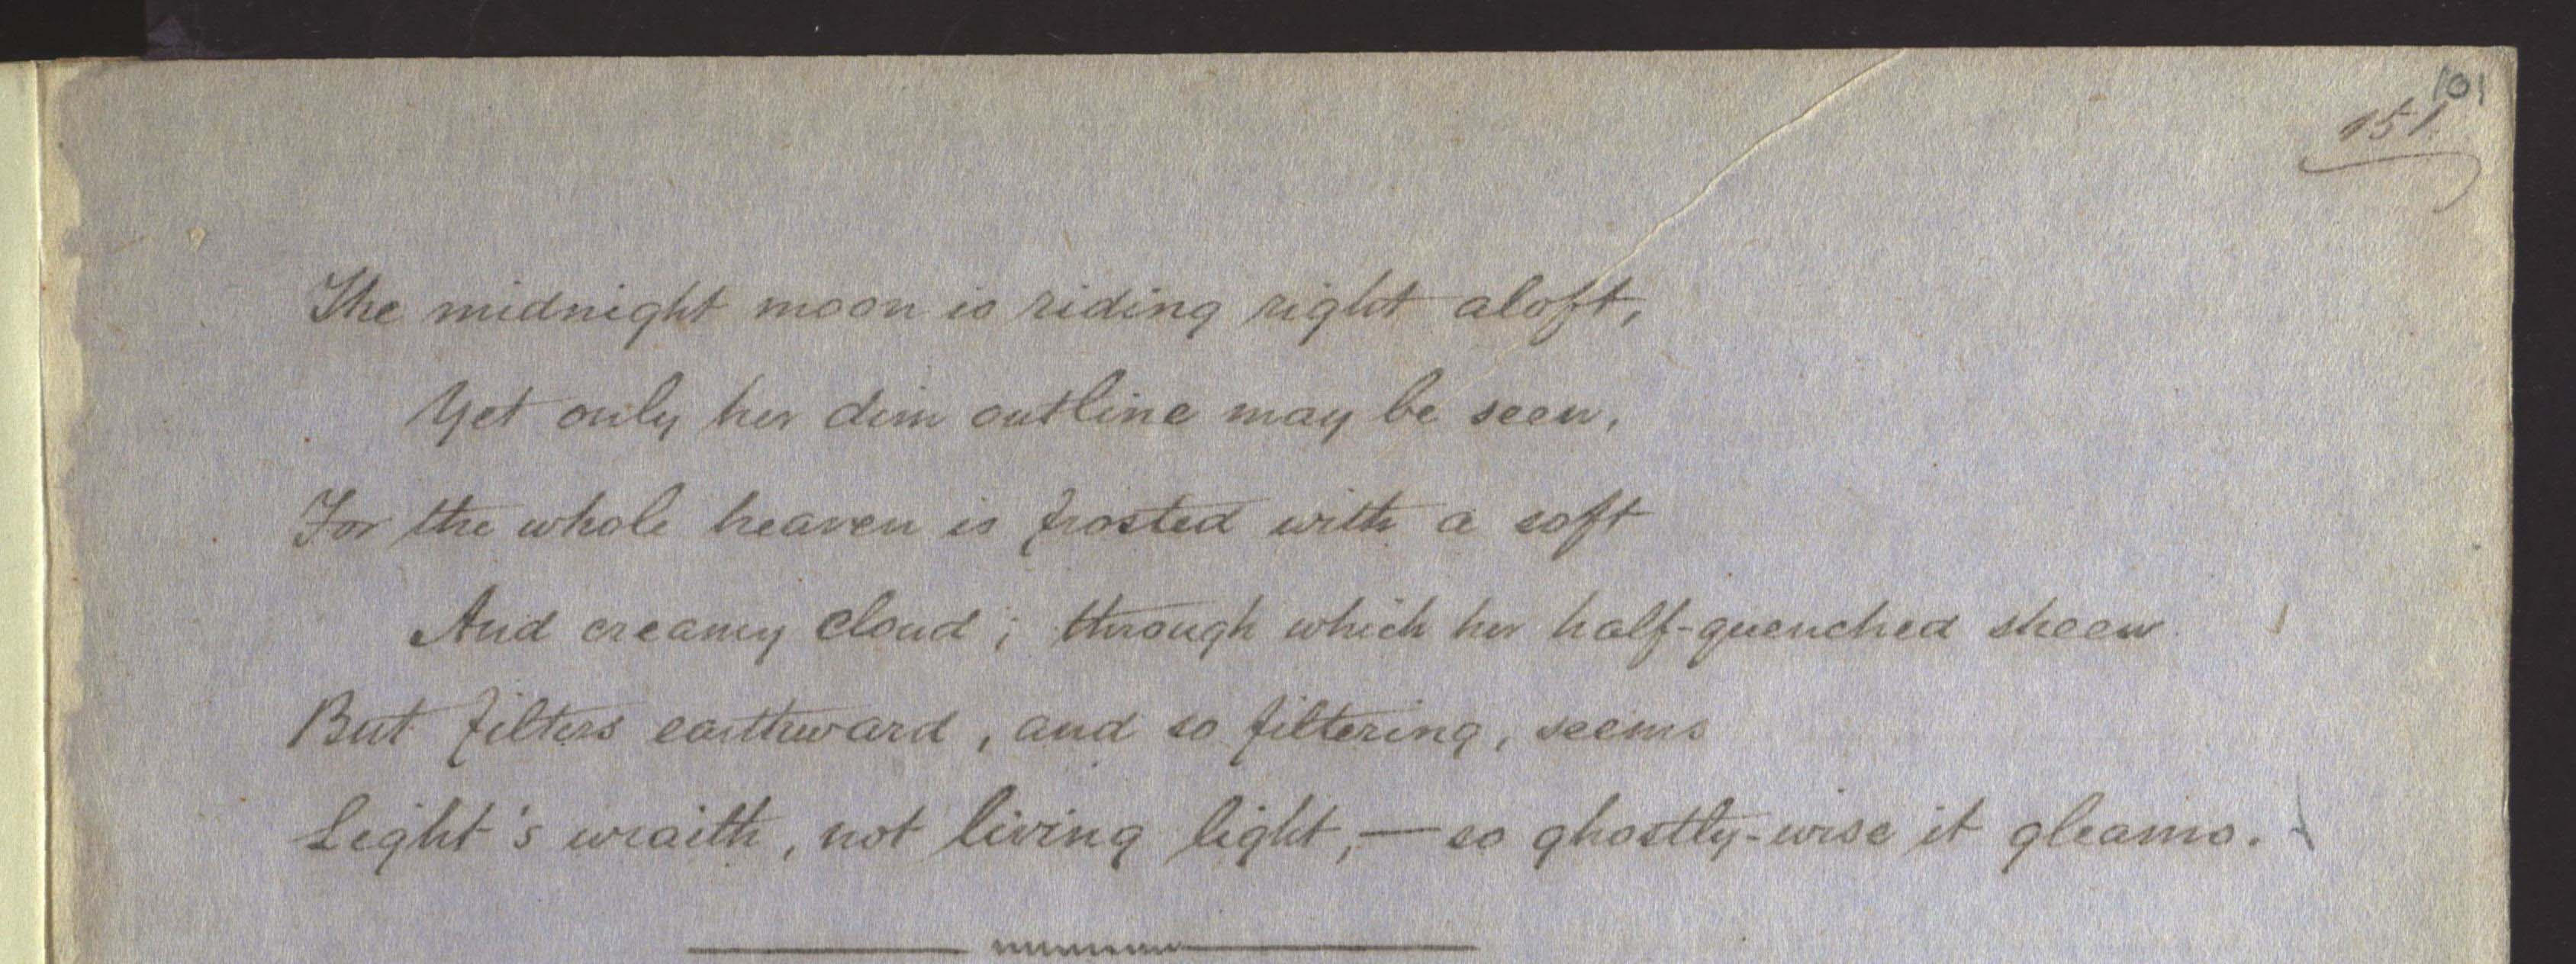 101
151
The midnight moon is riding right aloft,
Yet only her dim outline may be seen,
For the whole heaven is frosted with a soft
And creamy cloud; through which her half-quenched sheen
But filters earthward, and so filtering, seems
Light's wraith, not living light,— so ghostly-wise it gleams.